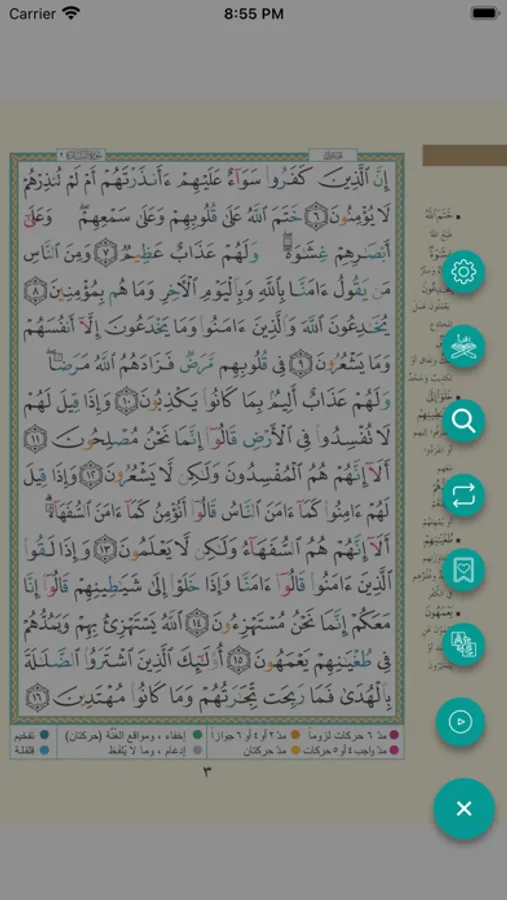 Carrier
8:55 PM
سُورَةُ البَقَرَة ٢
إِنَّ ٱلَّذِينَ كَفَرُوا۟ سَوَآءٌ عَلَيْهِمْ ءَأَنذَرْتَهُمْ أَمْ لَمْ تُنذِرْهُمْ
لَا يُؤْمِنُونَ ٦ خَتَمَ ٱللَّهُ عَلَىٰ قُلُوبِهِمْ وَعَلَىٰ سَمْعِهِمْ ۖ وَعَلَىٰٓ
أَبْصَٰرِهِمْ غِشَٰوَةٌ ۖ وَلَهُمْ عَذَابٌ عَظِيمٌ ٧ وَمِنَ ٱلنَّاسِ
مَن يَقُولُ ءَامَنَّا بِٱللَّهِ وَبِٱلْيَوْمِ ٱلْءَاخِرِ وَمَا هُم بِمُؤْمِنِينَ ٨
يُخَٰدِعُونَ ٱللَّهَ وَٱلَّذِينَ ءَامَنُوا۟ وَمَا يَخْدَعُونَ إِلَّآ أَنفُسَهُمْ
وَمَا يَشْعُرُونَ ٩ فِى قُلُوبِهِم مَّرَضٌ فَزَادَهُمُ ٱللَّهُ مَرَضًا ۖ
وَلَهُمْ عَذَابٌ أَلِيمٌۢ بِمَا كَانُوا۟ يَكْذِبُونَ ١٠ وَإِذَا قِيلَ لَهُمْ
لَا تُفْسِدُوا۟ فِى ٱلْأَرْضِ قَالُوٓا۟ إِنَّمَا نَحْنُ مُصْلِحُونَ ١١
أَلَآ إِنَّهُمْ هُمُ ٱلْمُفْسِدُونَ وَلَٰكِن لَّا يَشْعُرُونَ ١٢ وَإِذَا قِيلَ
لَهُمْ ءَامِنُوا۟ كَمَآ ءَامَنَ ٱلنَّاسُ قَالُوٓا۟ أَنُؤْمِنُ كَمَآ ءَامَنَ ٱلسُّفَهَآءُ ۗ
أَلَآ إِنَّهُمْ هُمُ ٱلسُّفَهَآءُ وَلَٰكِن لَّا يَعْلَمُونَ ١٣ وَإِذَا لَقُوا۟
ٱلَّذِينَ ءَامَنُوا۟ قَالُوٓا۟ ءَامَنَّا وَإِذَا خَلَوْا۟ إِلَىٰ شَيَٰطِينِهِمْ قَالُوٓا۟ إِنَّا
مَعَكُمْ إِنَّمَا نَحْنُ مُسْتَهْزِءُونَ ١٤ ٱللَّهُ يَسْتَهْزِئُ بِهِمْ وَيَمُدُّهُمْ
فِى طُغْيَٰنِهِمْ يَعْمَهُونَ ١٥ أُو۟لَٰٓئِكَ ٱلَّذِينَ ٱشْتَرَوُا۟ ٱلضَّلَٰلَةَ
بِٱلْهُدَىٰ فَمَا رَبِحَت تِّجَٰرَتُهُمْ وَمَا كَانُوا۟ مُهْتَدِينَ ١٦
مدّ ٦ حركات لزوماً مدّ ٢ أو ٤ أو ٦ جوازاً إخفاء ، ومواقع الغُنَّة (حركتان) تفخيم
مدّ واجب ٤ أو ٥ حركات مدّ حركتان إدغام ، وما لا يُلفَظ قلقلة
٣
خَتَمَ اللَّهُ
طَبَعَ اللهُ